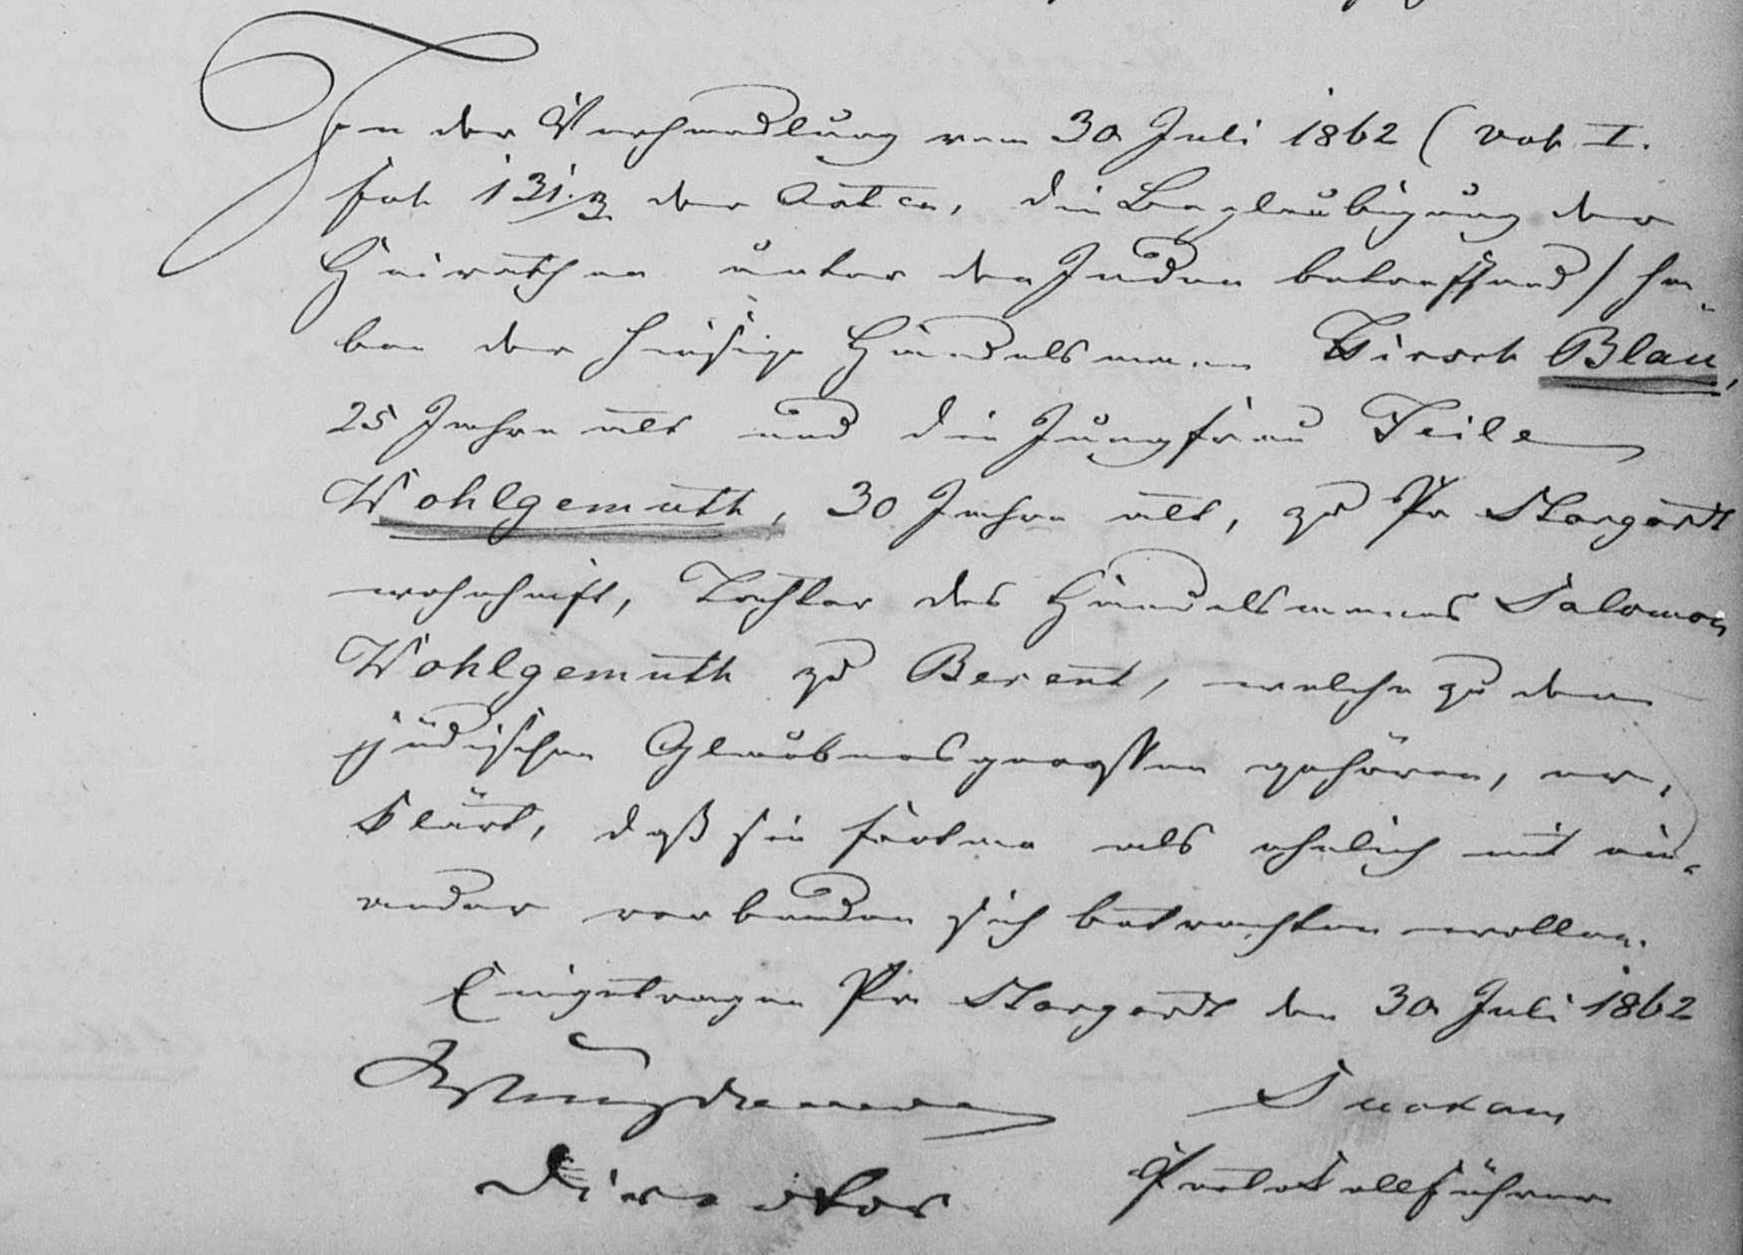 In der Verhandlung vom 30 Juli 1862 (vol I.
fol 131/3 der Acten, die Beglaubigung der
Heirathen unter den Juden betreffend) ha-
ben der hiesige Handelsmann Hirsch Blau,
25 Jahre alt und die Jungfrau Teile
Wohlgemuth, 30 Jahre alt, zu Pr Stargardt
wohnhaft, Tochter des Handelsmanns Salomon
Wohlgemuth zu Berent, welche zu den
jüdischen Glaubensgenossen gehören, er-
klärt, daß sie fortan als ehelich mit ein-
ander verbunden sich betrachten wollen.
Eingetragen Pr Stargardt den 30 Juli 1862
Director Protokollführer